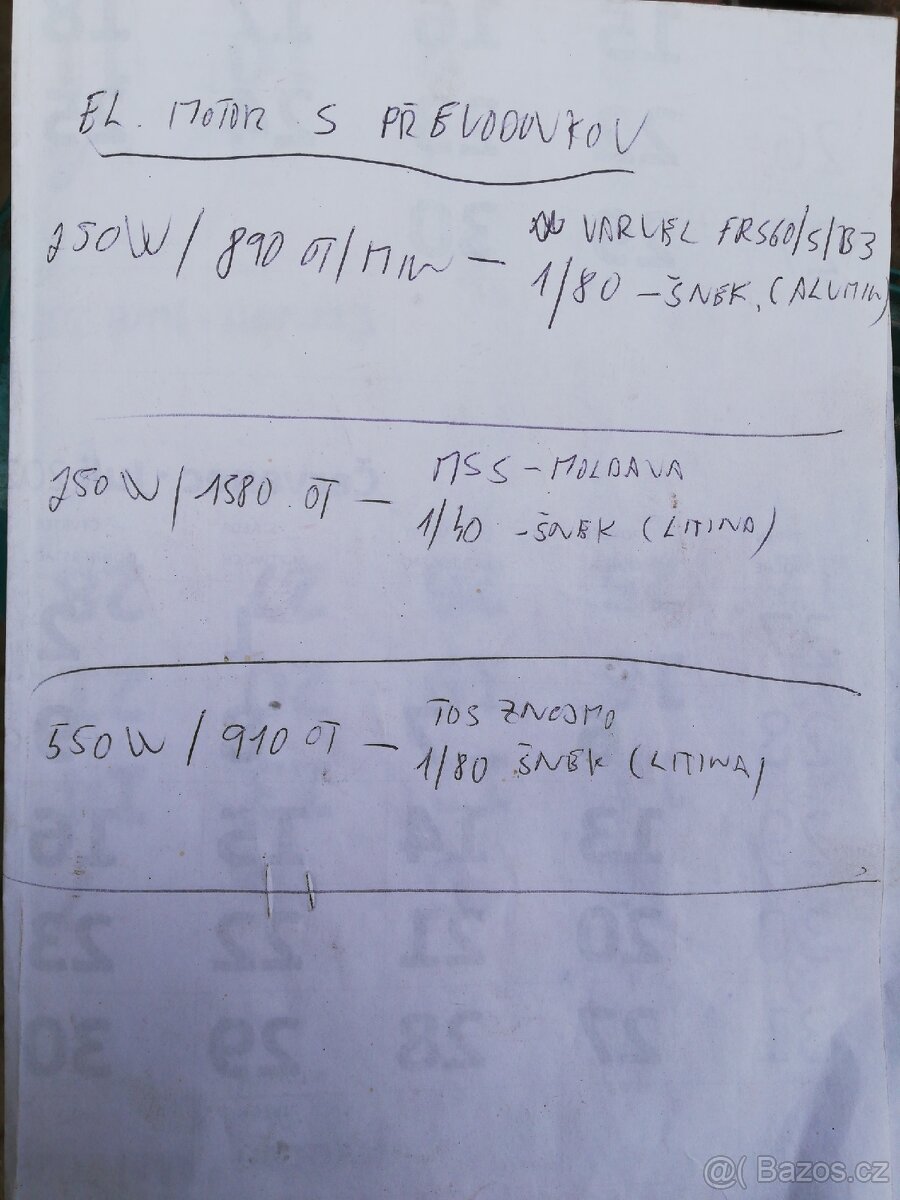 EL. MOTOR S PŘEVODOVKOV
250W / 890 OT/MIN – VARVEL FRS60/S/B3
1/80 – ŠNEK, (ALUMIN)
250W / 1380 OT – MSS – MOLDAVA
1/40 – ŠNEK (LITINA)
550W / 910 OT – TOS ZNOJMO
1/80 ŠNEK (LITINA)
16 15 14 13
23 22 21 20
30 29 28 27
@( Bazos.cz